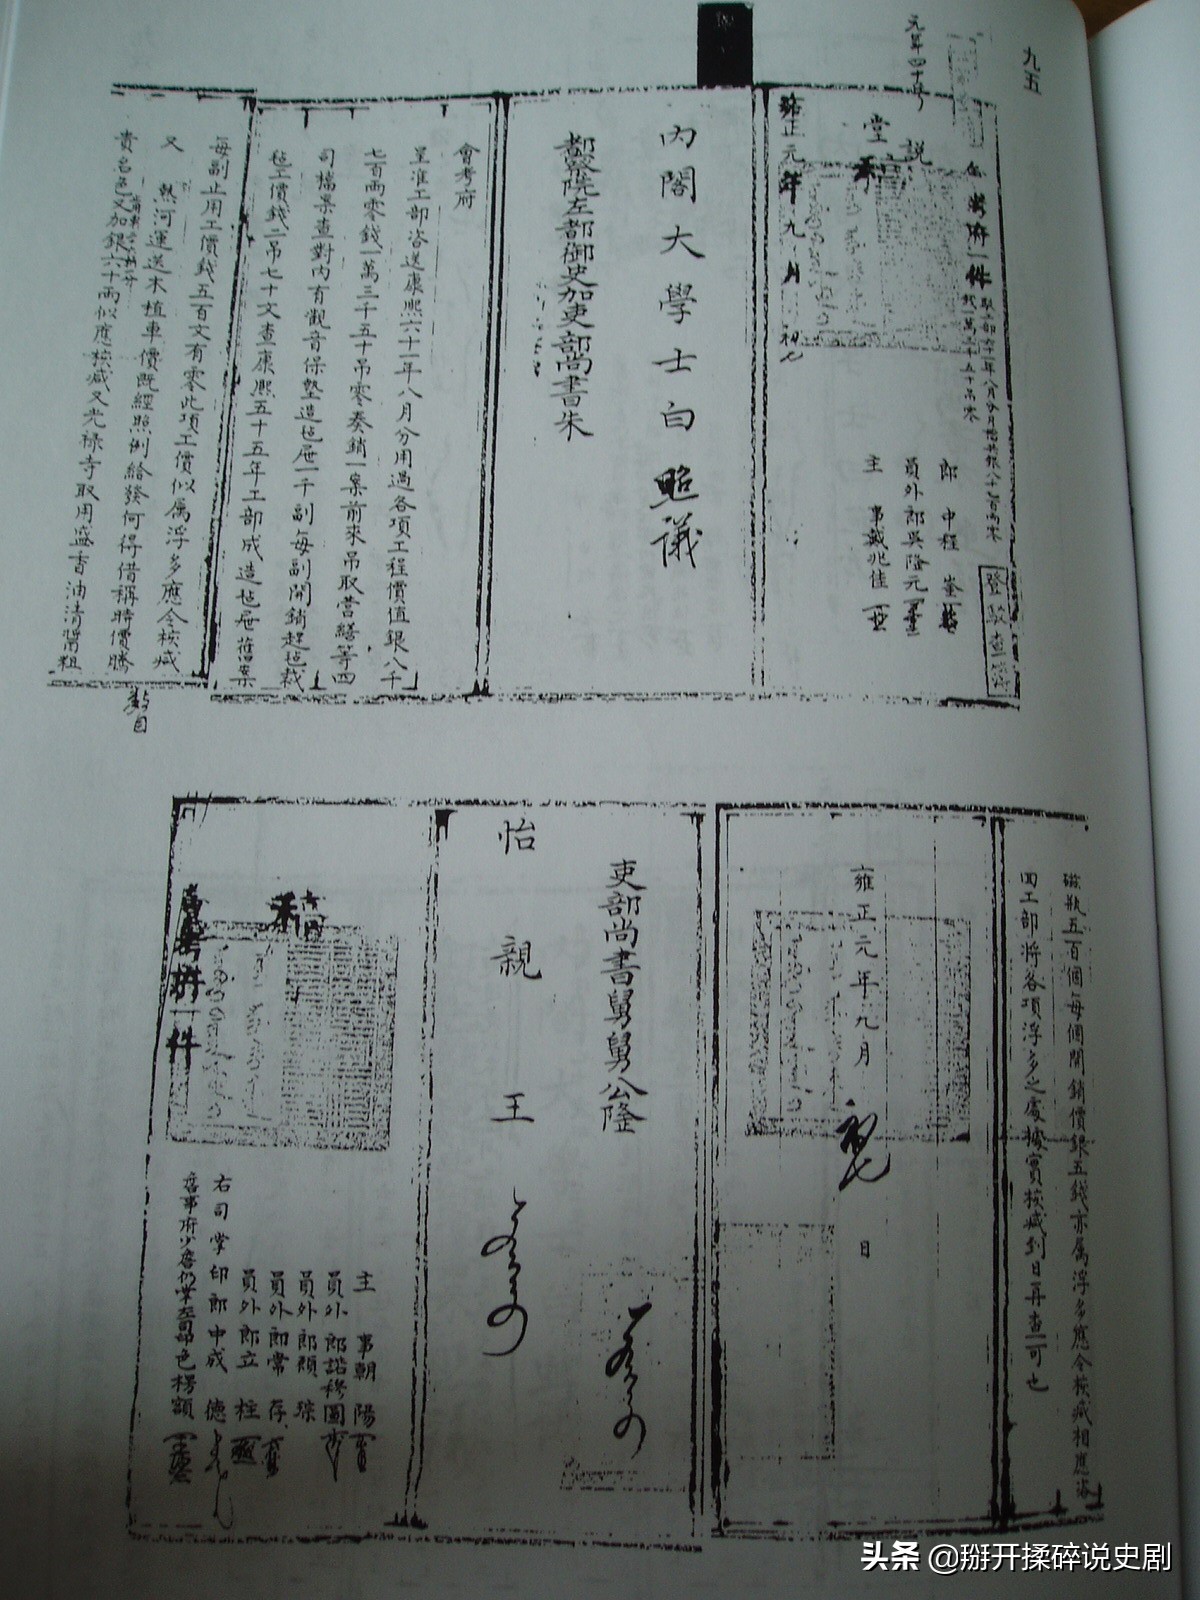 九五
元年四十号
會考府一件
登取查簿
郎中程崟
員外郎吳隆元
主事戴兆佳
說堂
稿
雍正元年九月初七
內閣大學士白 照議
都察院左都御史加吏部尚書朱
會考府
呈准工部咨送康熙六十一年八月分用過各項工程價值銀八千
七百兩零錢一萬三千五十吊零奏銷一案前來吊取營繕等四
司檔案查對內有觀音保墊造毡屉一千副每副開銷趕毡裁
毡工價錢二吊七十文查康熙五十五年工部成造毡屉舊案
每副止用工價錢五百文有零此項工價似属浮多應令核减
又熱河運送木植車價既經照例給發何得借稱時價騰
貴名色又加銀六十兩似應核减又光禄寺取用盛香油清醬粗
數目
磁瓶五百個每個開銷價銀五錢亦属浮多應令核减相應咨
回工部將各項浮多之處據實核减到日再查可也
雍正元年九月初七日
吏部尚書舅舅公隆
怡親王
稿
會考府一件
主事朝陽
員外郎諾穆圖
員外郎顏琮
員外郎常存
員外郎立柱
右司掌印郎中成德
詹事府少詹仍掌左司印色楞額
头条 @掰开揉碎说史剧